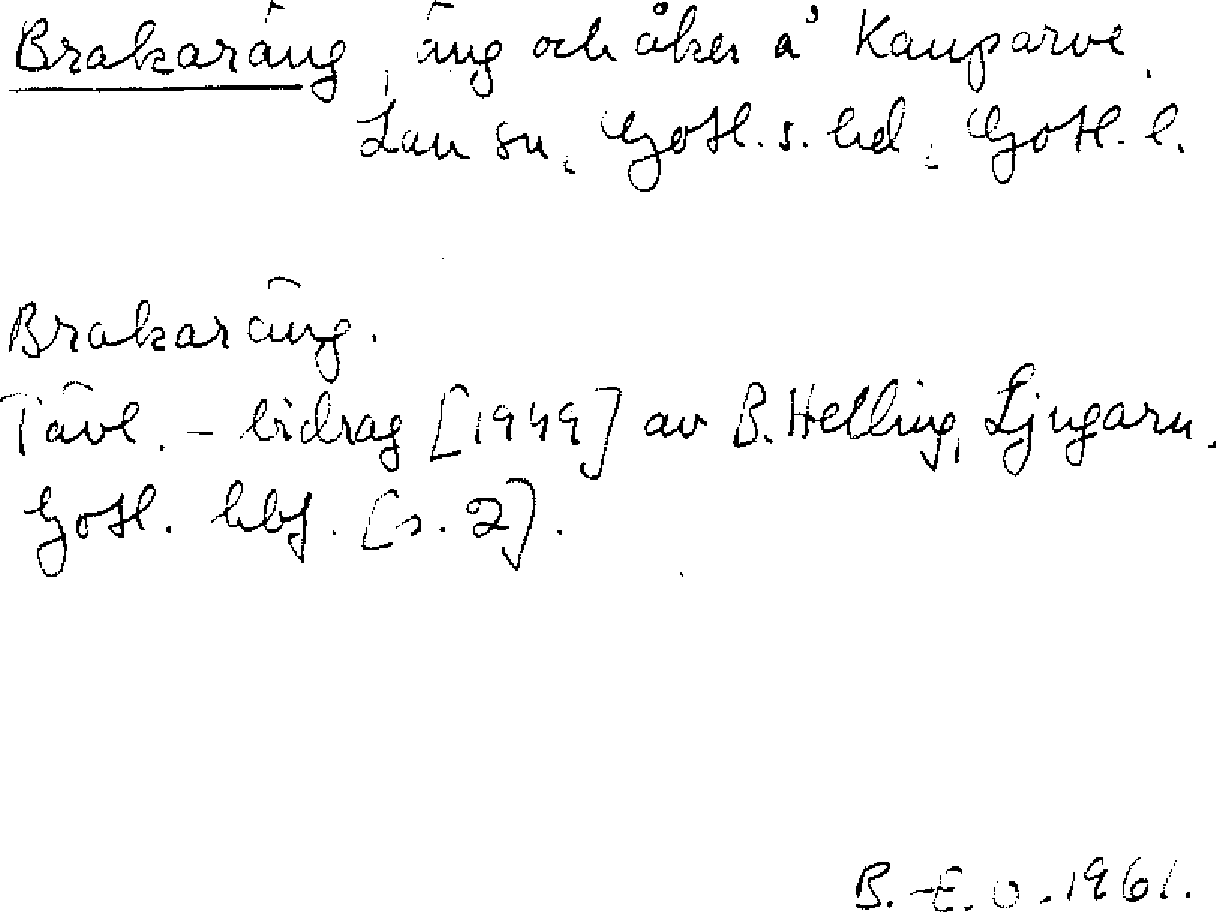 Brakaräng, äng och åker å Kauparve,
Lau sn, Gotl. s. hd, Gotl. l.
Brakaräng.
Tävl. - bidrag [1949] av B. Helling, Ljugarn.
Gotl. hbf. [s. 2].
B.-E. O. 1961.